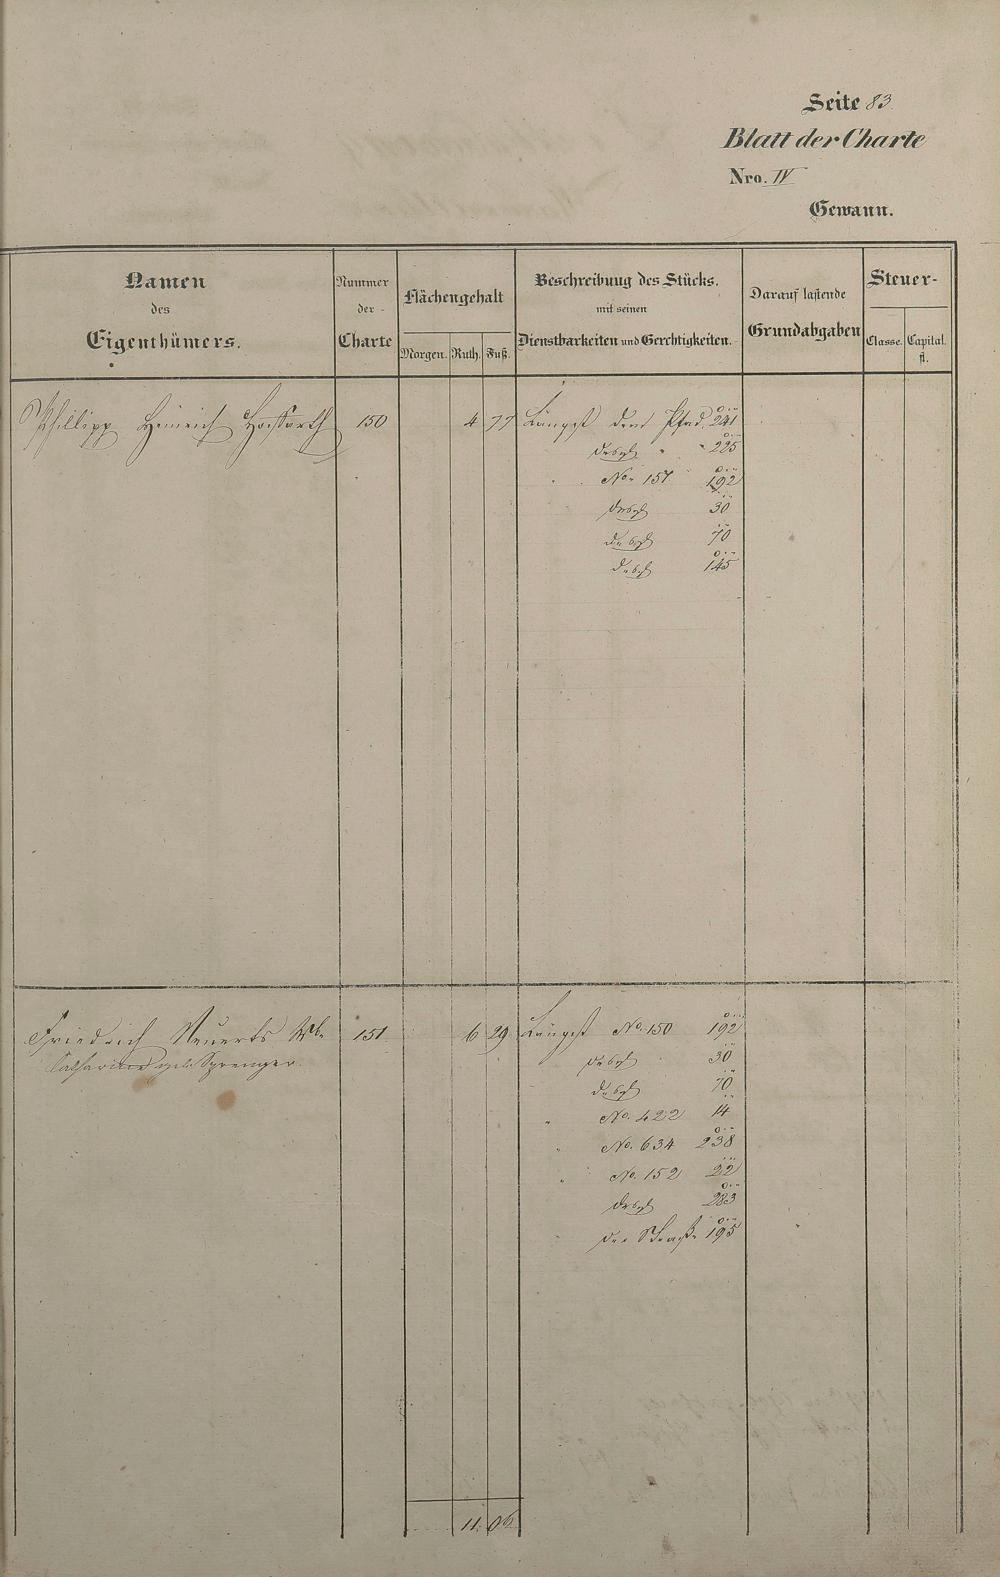 Seite 83
Blatt der Charte
Nro. IV
Gewann.
Namen des Eigenthümers.
Nummer der Charte
Flächengehalt
Morgen. Ruth. Fuß.
Beschreibung des Stücks.
mit seinen
Dienstbarkeiten und Gerchtigkeiten.
Darauf lastende
Grundabgaben
Steuer-
Classe. Capital.
fl.
Phillipp Heinrich 150 4 77 Längst dem Pfad 241
desgl " " 225
" No. 151 192
desgl 30
desgl 70
desgl 145
Friedrich Neuerts Wb. 151 6 29 Längst No. 150 192
Catharina geb. Sprenger. desgl 30
desgl 70
" No. 422 14
" No. 634 238
" No. 152 22
desgl 283
" der Straße 195
11 06